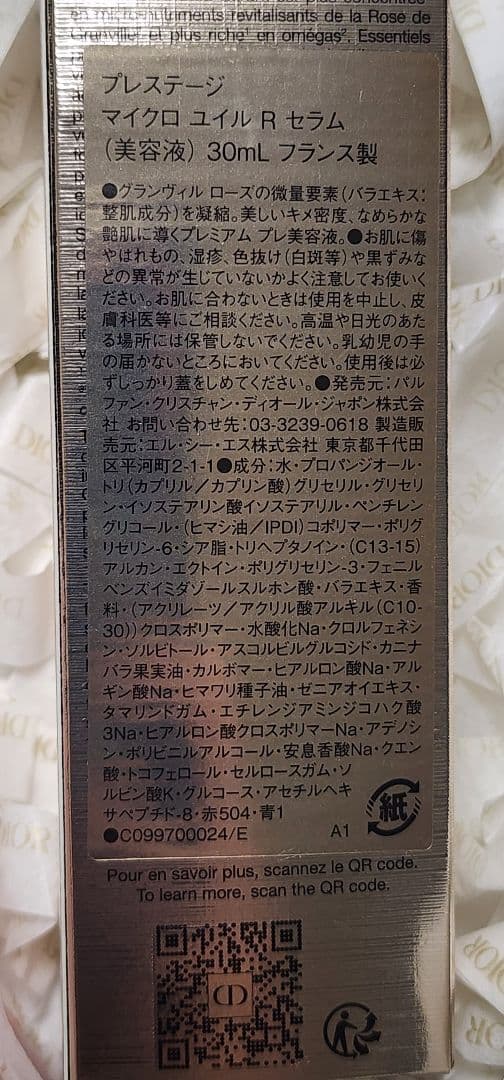 en micro-nutriments revitalisants de la Rose de
Granville¹ et plus riche¹ en omégas². Essentiels
プレステージ
マイクロ ユイル R セラム
(美容液) 30mL フランス製
●グランヴィル ローズの微量要素(バラエキス:
整肌成分)を凝縮。美しいキメ密度、なめらかな
艶肌に導くプレミアム プレ美容液。●お肌に傷
やはれもの、湿疹、色抜け(白斑等)や黒ずみな
どの異常が生じていないかよく注意してお使いく
ださい。お肌に合わないときは使用を中止し、皮
膚科医等にご相談ください。高温や日光のあた
る場所には保管しないでください。乳幼児の手
の届かないところにおいてください。使用後は必
ずしっかり蓋をしめてください。●発売元:パル
ファン・クリスチャン・ディオール・ジャポン株式会
社 お問い合わせ先:03-3239-0618 製造販
売元:エル・シー・エス株式会社 東京都千代田
区平河町2-1-1●成分:水・プロパンジオール・
トリ(カプリル/カプリン酸)グリセリル・グリセリ
ン・イソステアリン酸イソステアリル・ペンチレン
グリコール・(ヒマシ油/IPDI)コポリマー・ポリグ
リセリン-6・シア脂・トリヘプタノイン・(C13-15)
アルカン・エクトイン・ポリグリセリン-3・フェニル
ベンズイミダゾールスルホン酸・バラエキス・香
料・(アクリレーツ/アクリル酸アルキル(C10-
30))クロスポリマー・水酸化Na・クロルフェネシ
ン・ソルビトール・アスコルビルグルコシド・カニナ
バラ果実油・カルボマー・ヒアルロン酸Na・アル
ギン酸Na・ヒマワリ種子油・ゼニアオイエキス・
タマリンドガム・エチレンジアミンジコハク酸
3Na・ヒアルロン酸クロスポリマーNa・アデノシ
ン・ポリビニルアルコール・安息香酸Na・クエン
酸・トコフェロール・セルロースガム・ソ
ルビン酸K・グルコース・アセチルヘキ
サペプチド-8・赤504・青1
●C099700024/E A1
紙
Pour en savoir plus, scannez le QR code.
To learn more, scan the QR code.
CD